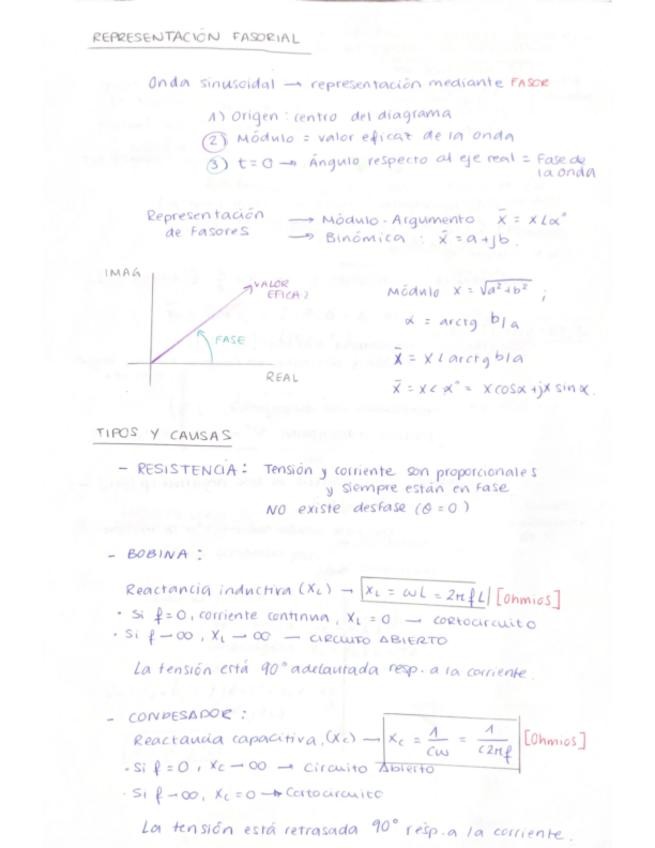 REPRESENTACIÓN FASORIAL
Onda sinusoidal → representación mediante FASOR
1) Origen : centro del diagrama
2) Módulo = valor eficaz de la onda
3) t = 0 → Ángulo respecto al eje real = Fase de
la onda
Representación → Módulo - Argumento x̄ = X∠α°
de Fasores → Binómica : x̄ = a + jb.
IMAG
VALOR
EFICAZ
FASE
REAL
Módulo X = √a² + b² ;
α = arctg b/a
x̄ = X∠arctg b/a
x̄ = X∠α° = X cosα + jX sinα.
TIPOS Y CAUSAS
- RESISTENCIA : Tensión y corriente son proporcionales
y siempre están en Fase
NO existe desfase (θ = 0)
- BOBINA :
Reactancia inductiva (XL) → XL = ωL = 2πfL [Ohmios]
· Si f = 0, corriente continua, XL = 0 → cortocircuito
· Si f → ∞, XL → ∞ — CIRCUITO ABIERTO
La tensión está 90° adelantada resp. a la corriente.
- CONDESADOR :
Reactancia capacitiva, (Xc) → Xc = 1/Cω = 1/C2πf [Ohmios]
· Si f = 0, Xc → ∞ → Circuito Abierto
· Si f → ∞, Xc = 0 → Cortocircuito
La tensión está retrasada 90° resp. a la corriente.